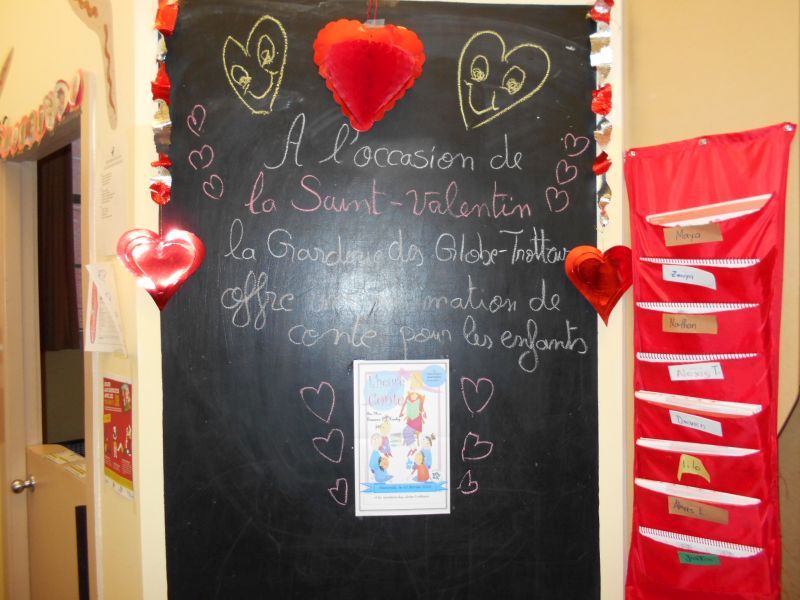 A l'occasion de
la Saint-Valentin
la Garderie des Globe-Trotteur
offre une animation de
conte pour les enfants
L'heure
Conte
Maya
Zeinya
Nathan
Alexis T.
Draven
lilo
Alexis L.
Justin